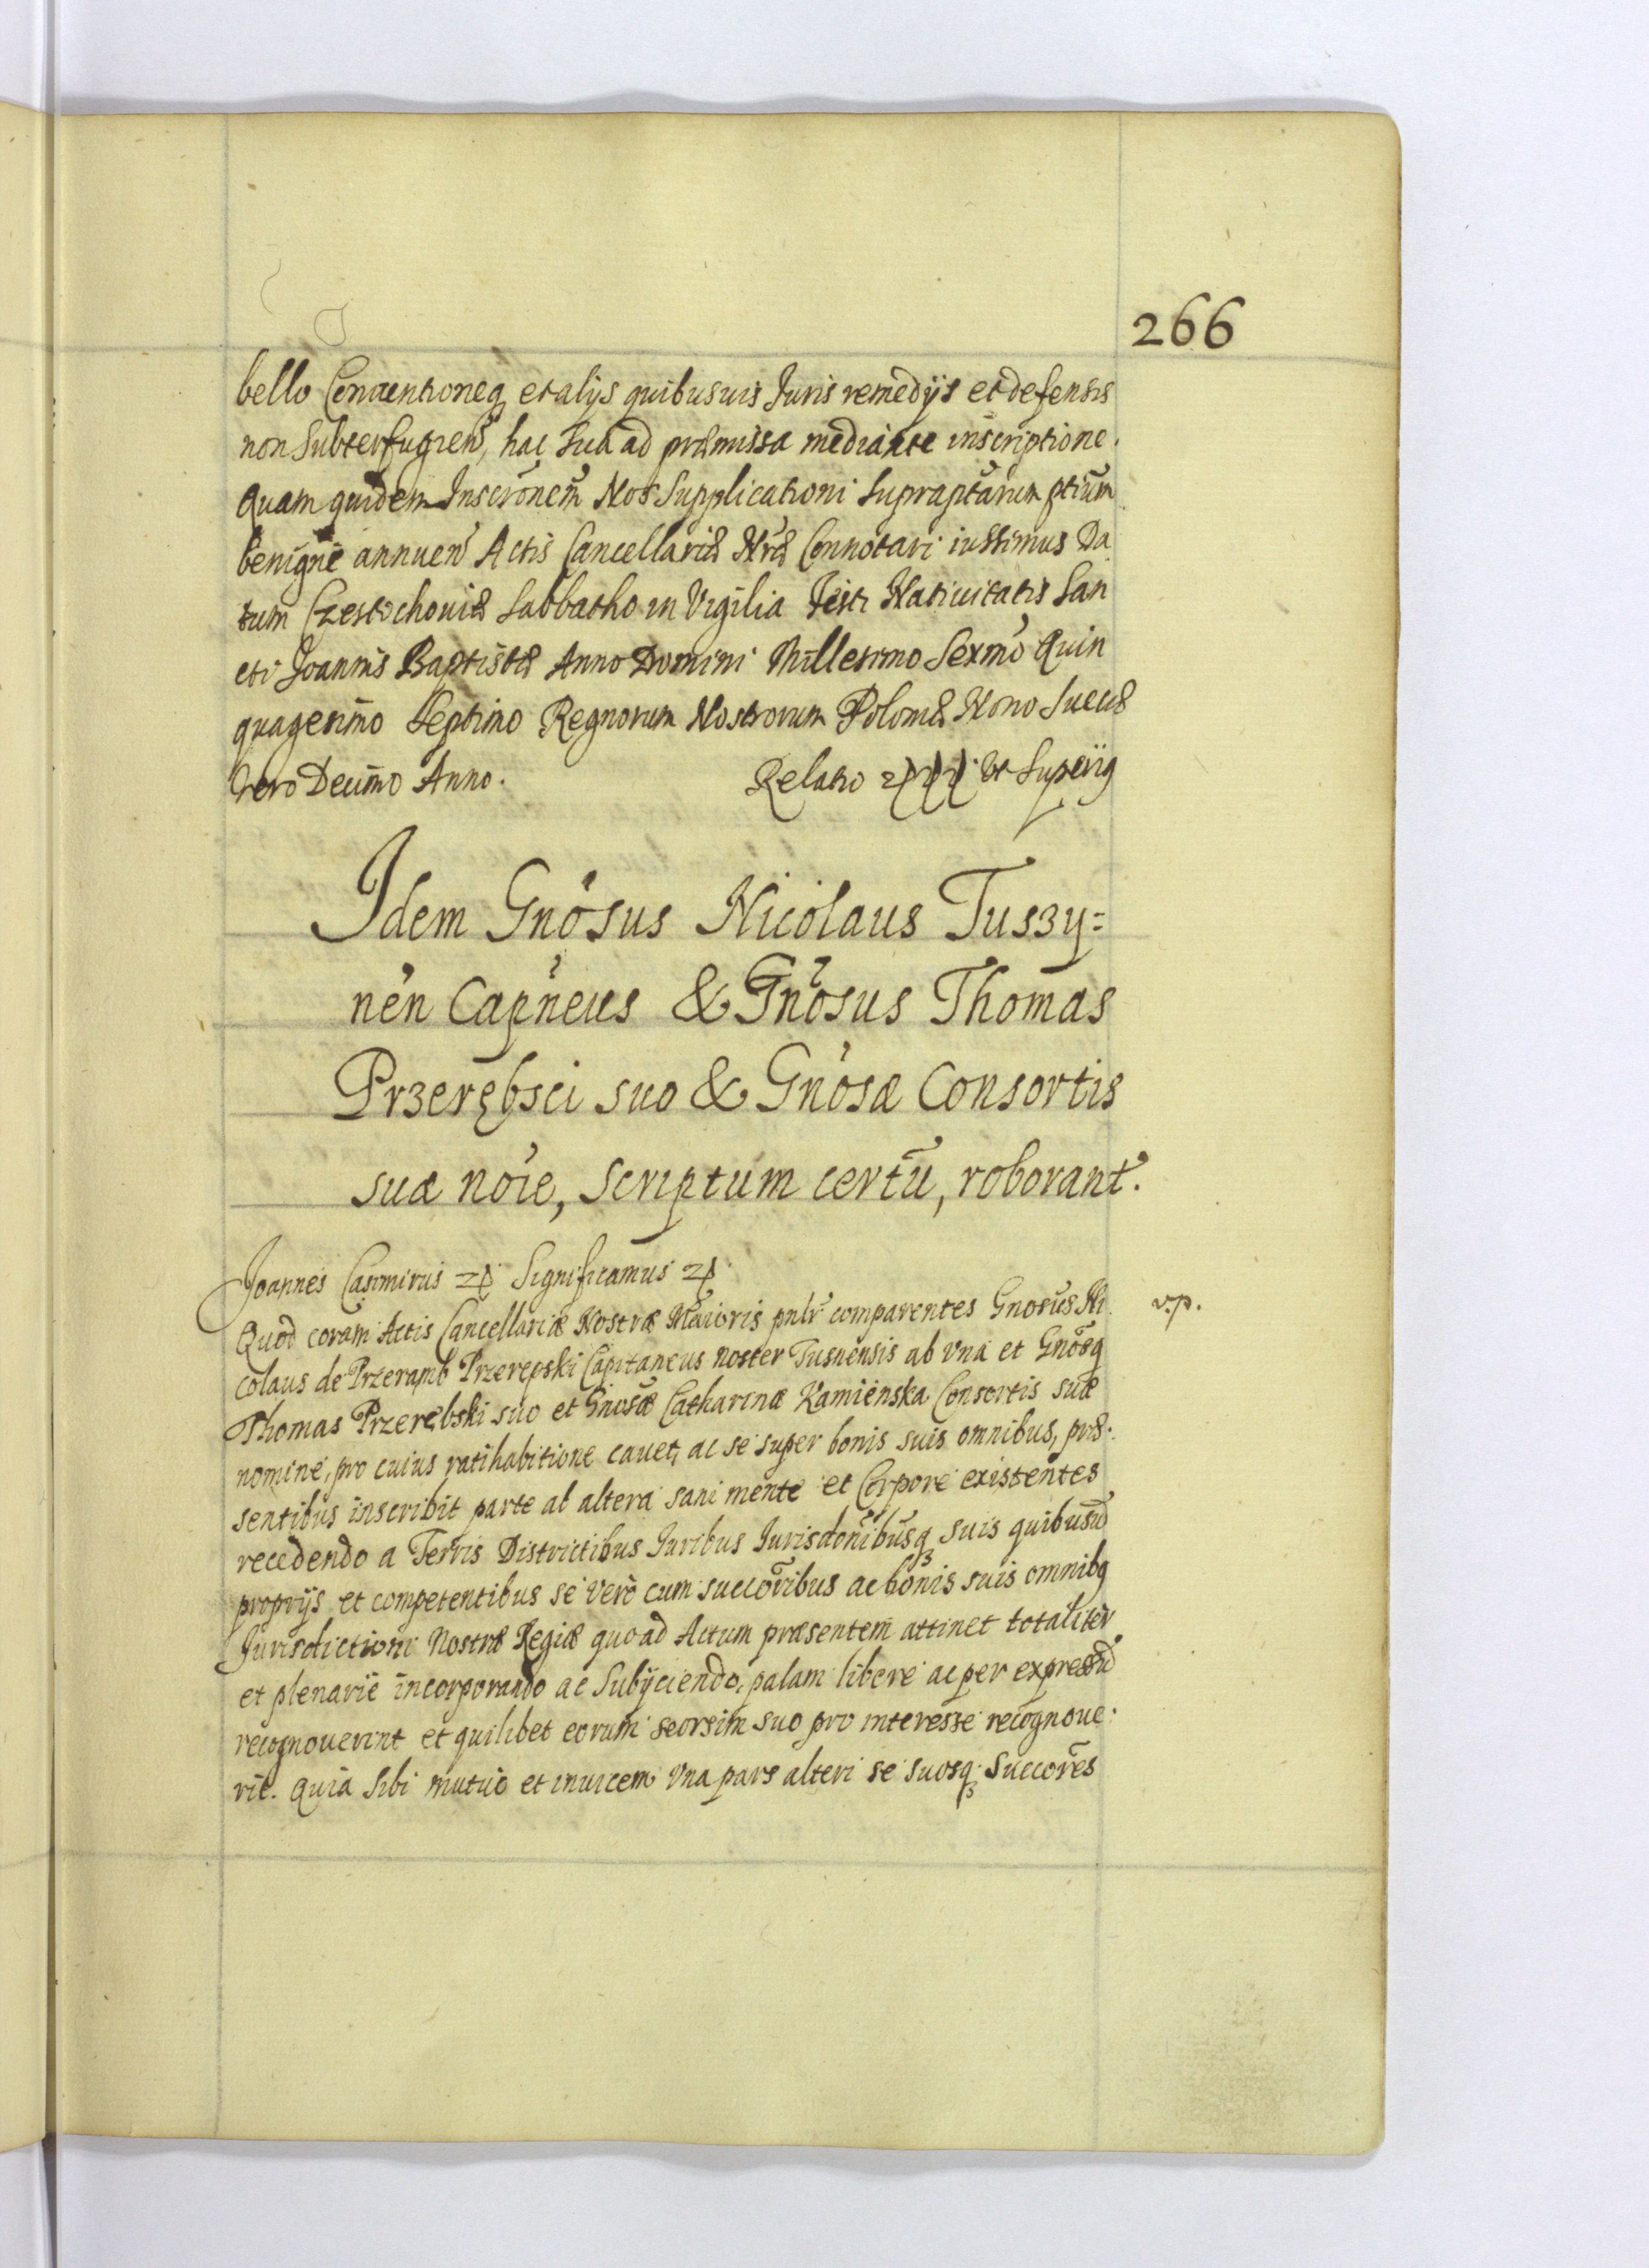 266
bello Conventioneq₃ et alijs quibusuis Juris remedijs et defensis
non Subterfugien̄, hac sua ad præmissa mediante inscriptione.
Quam quidem Inscr̄onem̄ Nos Supplicationi supraptārum ptium
benignè annuen̄ Actis Cancellariæ Nr̄æ Connotari iussimus Da
tum Czestochouiæ Sabbatho in Vigilia Festi Natiuitatis San
cti Joannis Baptistæ Anno Domini Millesimo Sexm̄o Quin
quagesimo Septimo Regnorum Nostrorum Poloniæ Nono Sueciæ
Vero Decim̄o Anno. Relatio Ut Superiq
Idem Gnōsus Nicolaus Tuszy=
nēn Capn̄eus & Gnōsus Thomas
Przerębsci suo & Gnōsæ Consortis
suæ nōie, scriptum certū, roborant.
Joannes Casimirus Significamus
v.p.
Quod coram Actis Cancellariæ Nostræ Maioris pnlr̄ comparentes Gnosus Ni
colaus de Przeramb Przerepski Capitaneus noster Tusnensis ab vna et Gnōsq
Thomas Przerębski suo et Gnosæ Catharinæ Kamienska Consortis suæ
nomine, pro cuius ratihabitione cauet, ac se super bonis suis omnibus, præ:
sentibus inscribit parte ab altera sani mente et Corpore existentes
recedendo a Terris Districtibus Juribus Jurisdōnibusq₃ suis quibusū
proprijs et competentibus se verò cum succōribus ac bonis suis omnibq
Jurisdictioni Nostræ Regiæ quoad Actum præsentem attinet totaliter
et plenariè incorporando ac Subijciendo, palam libere ac per expressū
recognouerint et quilibet eorum seorsim suo pro interesse recognoue:
rit. Quia sibi mutuò et inuicem Vna pars alteri se suosq₃ Succōres